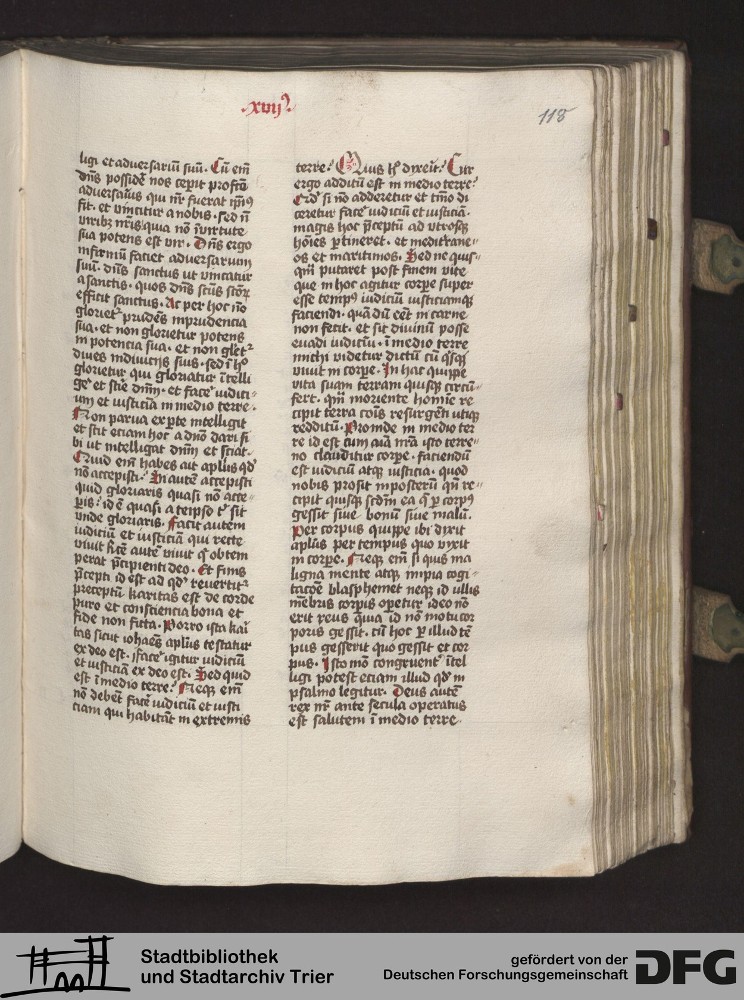 xvij
118
ligi et adversariū suū. Cū em̄
dn̄s possidē nos cepit profcō
adversarius qui nr̄ fuerat ip̄iꝰ
fit. et vincitur a nobis. sed nō
viribꝫ nr̄is quia nō ī virtute
sua potens est vir. Dn̄s ergo
infirmū faciet adversarium
suū. dn̄s sanctus ut vincatur
a sanctis. quos dn̄s sc̄us sc̄oꝝ
efficit sanctus. Ac per hoc nō
glorietᷣ prudēs in prudencia
sua. et non glorietur potens
in potencia sua. et non gl̄etᷣ
dives in divicijs suis. sed ī hͦ
glorietur qui gloriatur ītelli
ge᷑ et scīe dn̄m. et face᷑ iudici-
um et iusticiā in medio terre.
Non parva ex parte intelligit
et scit eciam hoc a dn̄o dari si-
bi ut intelligat dn̄m et sciat.
Quid em̄ habes ait apl̄us qd᷑
nō accepisti. Si autē accepisti
quid gloriaris quasi nō acce-
peris. id ē quasi a teipso t᷑ sit
unde gloriaris. Facit autem
iudiciū et iusticiā qui recte
vivit r̄cte autē vivit q̄ obtem
perat p̄cipienti deo. Et finis
p̄cepti id est ad qd᷑ revertitᷣ
preceptū karitas est de corde
puro et consciencia bona et
fide non ficta. Porro ista kaͥ
tas sicut iohaēs apl̄us testatur
ex deo est. fface᷑ igitur iudiciū
et iusticiā ex deo est. Sed quid
est ī medio terre. Neqꝫ em̄
nō debēt face᷑ iudiciū et iusti
ciam qui habitāt in extremis
terre. Quis hͦ dyxeīt. Cur
ergo additū est in medio terre.
Qd᷑ si nō adderetur et tm̄o di
ceretur face᷑ iudiciū et iusticiā.
magis hoc p̄ceptū ad utrosqꝫ
hoīes ꝑtineret. et mediterane-
os et maritimos. Sed ne quis-
qm̄ putaret post finem vite
que in hoc agitur corpe super
esse tempꝰ iudiciū iusticiamqꝫ
faciendi. quā dū eēt in carne
non fecit. et sic divinū posse
evadi iudiciū. ī medio terre
michi videtur dictū cū q̄sqꝫ
vivit in corpe. In hac quippe
vita suam terram quisqꝫ circū-
fert. qm̄ moriente homīe re
cipit terra cōis resurgēti utiqꝫ
redditū. Proinde in medio ter
re id est cum aīa nr̄a isto terre-
no clauditur corpe. faciendū
est iudiciū atqꝫ iusticia. quod
nobis prosit in posterū qn̄ re-
cipit quisqꝫ scdm̄ ea q̄ ꝑ corpꝰ
gessit sive bonū sive malū.
Per corpus quippe ibi dyxit
apl̄us per tempus quo vyxit
in corpe. Neqꝫ em̄ si quis ma
ligna mente atqꝫ impia cogi-
tacōe blasphemet neqꝫ id ullis
mēbris corpis opetur ideo nō
erit reus quia id nō motu cor
poris gessit. cū hoc ꝑ illud tē
pus gesserit quo gessit et cor
pus. Isto mō congruent᷑ ītel
ligi potest eciam illud qd᷑ in
psalmo legitur. Deus autē
rex nr̄ ante secula operatus
est salutem ī medio terre
Stadtbibliothek
und Stadtarchiv Trier
gefördert von der
Deutschen Forschungsgemeinschaft
DFG